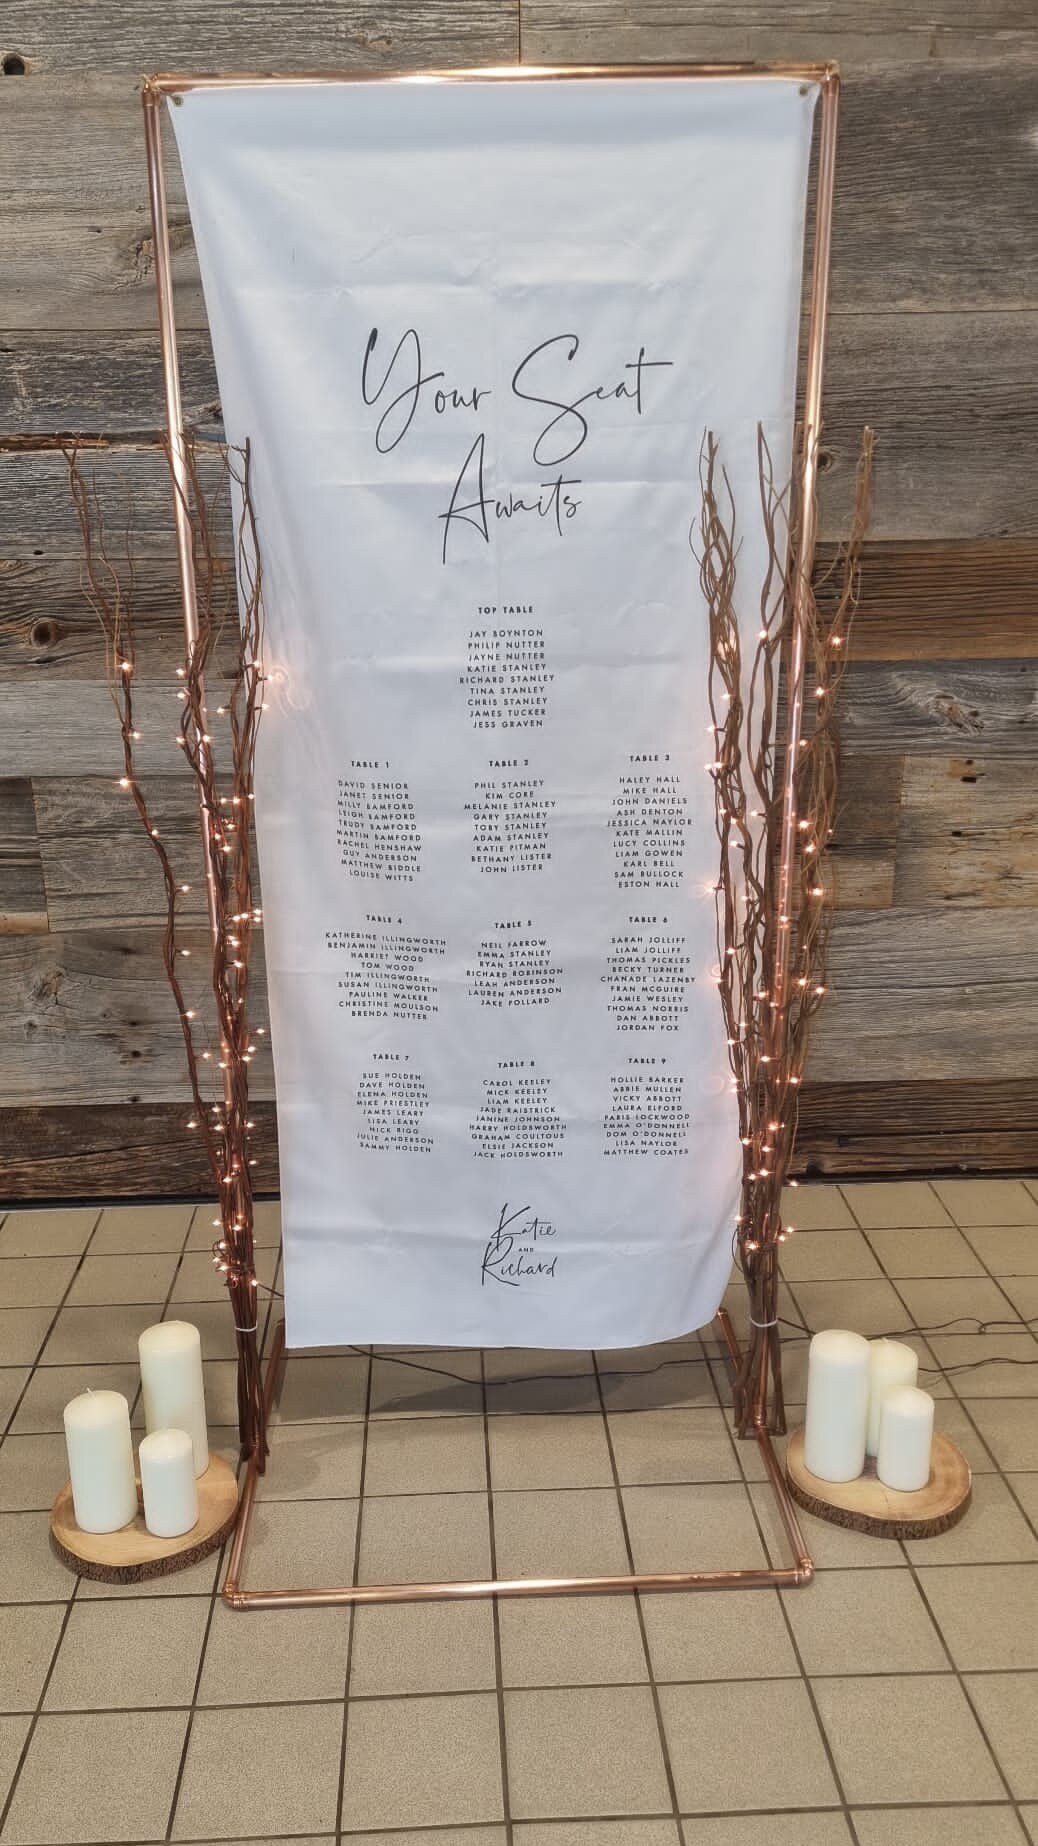 Your Seat
Awaits
TOP TABLE
JAY BOYNTON
PHILIP NUTTER
JAYNE NUTTER
KATIE STANLEY
RICHARD STANLEY
TINA STANLEY
CHRIS STANLEY
JAMES TUCKER
JESS GRAVEN
TABLE 1
DAVID SENIOR
JANET SENIOR
MILLY BAMFORD
LEIGH BAMFORD
TRUDY BAMFORD
MARTIN BAMFORD
RACHEL HENSHAW
GUY ANDERSON
MATTHEW BIDDLE
LOUISE WITTS
TABLE 2
PHIL STANLEY
KIM CORE
MELANIE STANLEY
GARY STANLEY
TOBY STANLEY
ADAM STANLEY
KATIE PITMAN
BETHANY LISTER
JOHN LISTER
TABLE 3
HALEY HALL
MIKE HALL
JOHN DANIELS
ASH DENTON
JESSICA NAYLOR
KATE MALLIN
LUCY COLLINS
LIAM GOWEN
KARL BELL
SAM BULLOCK
ESTON HALL
TABLE 4
KATHERINE ILLINGWORTH
BENJAMIN ILLINGWORTH
HARRIET WOOD
TOM WOOD
TIM ILLINGWORTH
SUSAN ILLINGWORTH
PAULINE WALKER
CHRISTINE MOULSON
BRENDA NUTTER
TABLE 5
NEIL FARROW
EMMA STANLEY
RYAN STANLEY
RICHARD ROBINSON
LEAH ANDERSON
LAUREN ANDERSON
JAKE POLLARD
TABLE 6
SARAH JOLLIFF
LIAM JOLLIFF
THOMAS PICKLES
BECKY TURNER
CHANADE LAZENBY
FRAN MCGUIRE
JAMIE WESLEY
THOMAS NORRIS
DAN ABBOTT
JORDAN FOX
TABLE 7
SUE HOLDEN
DAVE HOLDEN
ELENA HOLDEN
MIKE PRIESTLEY
JAMES LEARY
LISA LEARY
NICK RIGG
JULIE ANDERSON
SAMMY HOLDEN
TABLE 8
CAROL KEELEY
MICK KEELEY
LIAM KEELEY
JADE RAISTRICK
JANINE JOHNSON
HARRY HOLDSWORTH
GRAHAM COULTOUS
ELSIE JACKSON
JACK HOLDSWORTH
TABLE 9
HOLLIE BARKER
ABBIE MULLEN
VICKY ABBOTT
LAURA ELFORD
PARIS LOCKWOOD
EMMA O'DONNELL
DOM O'DONNELL
LISA NAYLOR
MATTHEW COATES
Katie
AND
Richard